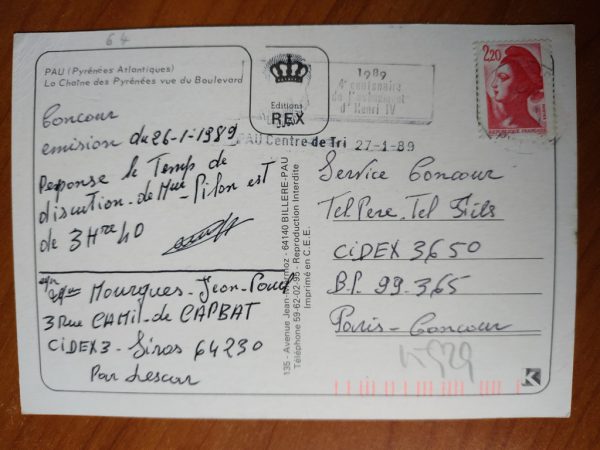 64
PAU (Pyrénées Atlantiques)
La Chaîne des Pyrénées vue du Boulevard
Editions
REX
1989
4e centenaire
de l'avènement
d'Henri IV
PAU Centre de Tri 27-1-89
2,20
REPUBLIQUE FRANÇAISE
Concour
emission du 26-1-1989
Reponse le Temp de
discution de Mme Pilon est
de 3Hre 40
Mourgues-Jean-Paul
3 Rue CAMIL-de CAPBAT
CiDEX3-Siros 64230
Par Lescar
135 - Avenue Jean-Mermoz - 64140 BILLERE-PAU
Téléphone 59-62-02-95 - Reproduction Interdite
Imprimé en C.E.E.
Service Concour
Tel Pere, Tel Fils
CiDEX 3650
B.P. 99-365
Paris-Concour
K